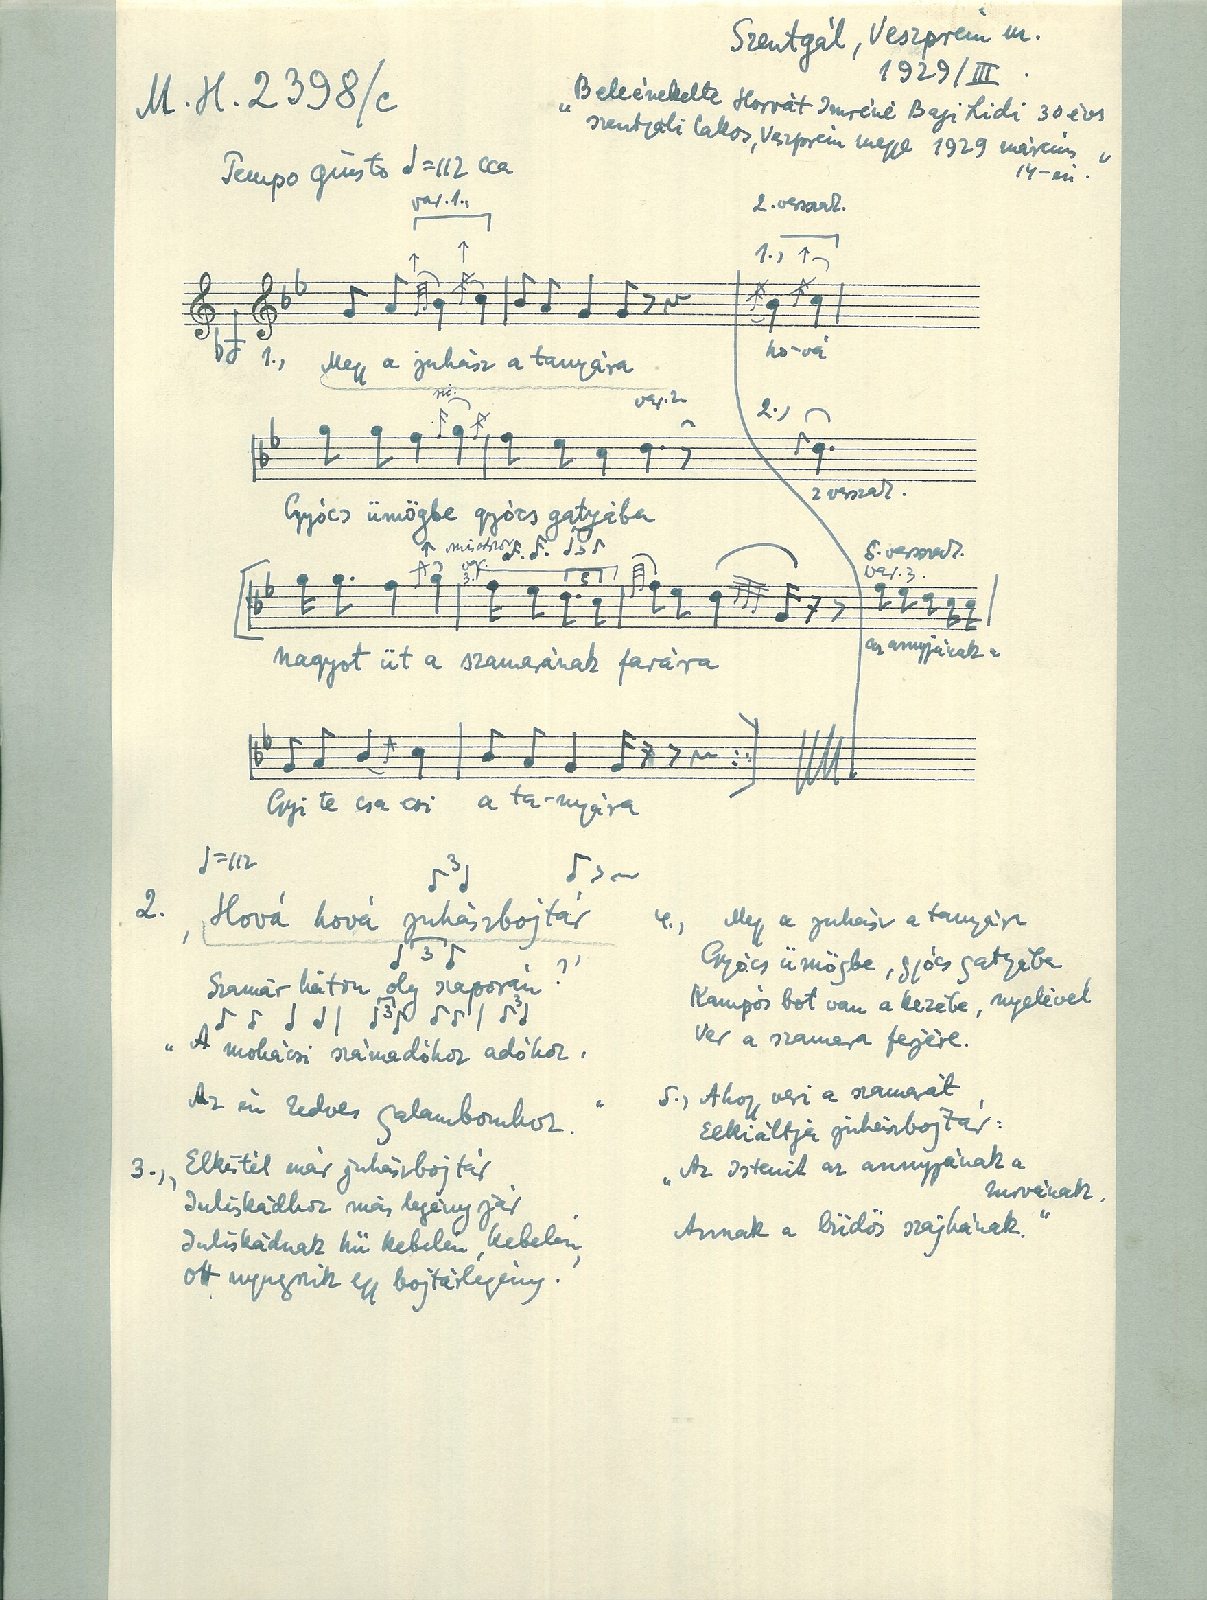 Szentgál, Veszprém m.
1929/III.
M.H. 2398/c
"Beleénekelte Horvát Imréné Bagi Lidi 30 éves
szentgáli lakos, Veszprém megye 1929 március
14-én."
Tempo giusto ♩=112 cca
var. 1.,
2. versszak.
1.,
1., Megy a juhász a tanyára
ho-vá
var. 2
2.,
Gyócs ümögbe gyócs gatyába
2 versszak.
var.
3.
5
5. versszak.
var. 3.
Nagyot üt a szamarának farára
az annyjának a
Gyi te csa csi a ta-nyára
♩=112
3
2., Hová hová juhászbojtár
3
Szamár háton oly szaporán?
3 3
"A mohácsi számadóhoz adóhoz,
Az én kedves galambomhoz."
3., Elkéstél már juhászbojtár
Juliskádhoz más legény jár
Juliskádnak hű kebelén, kebelén,
Ott nyugszik egy bojtárlegény.
4., Megy a juhász a tanyára
Gyócs ümögbe, gyócs gatyába
Kampós bot van a kezébe, nyelével
Ver a szamara fejére.
5., Ahogy veri a szamarát,
Elkiáltja juhászbojtár:
"Az Istenit az annyjának a
kurvának,
Annak a büdös szájhának."